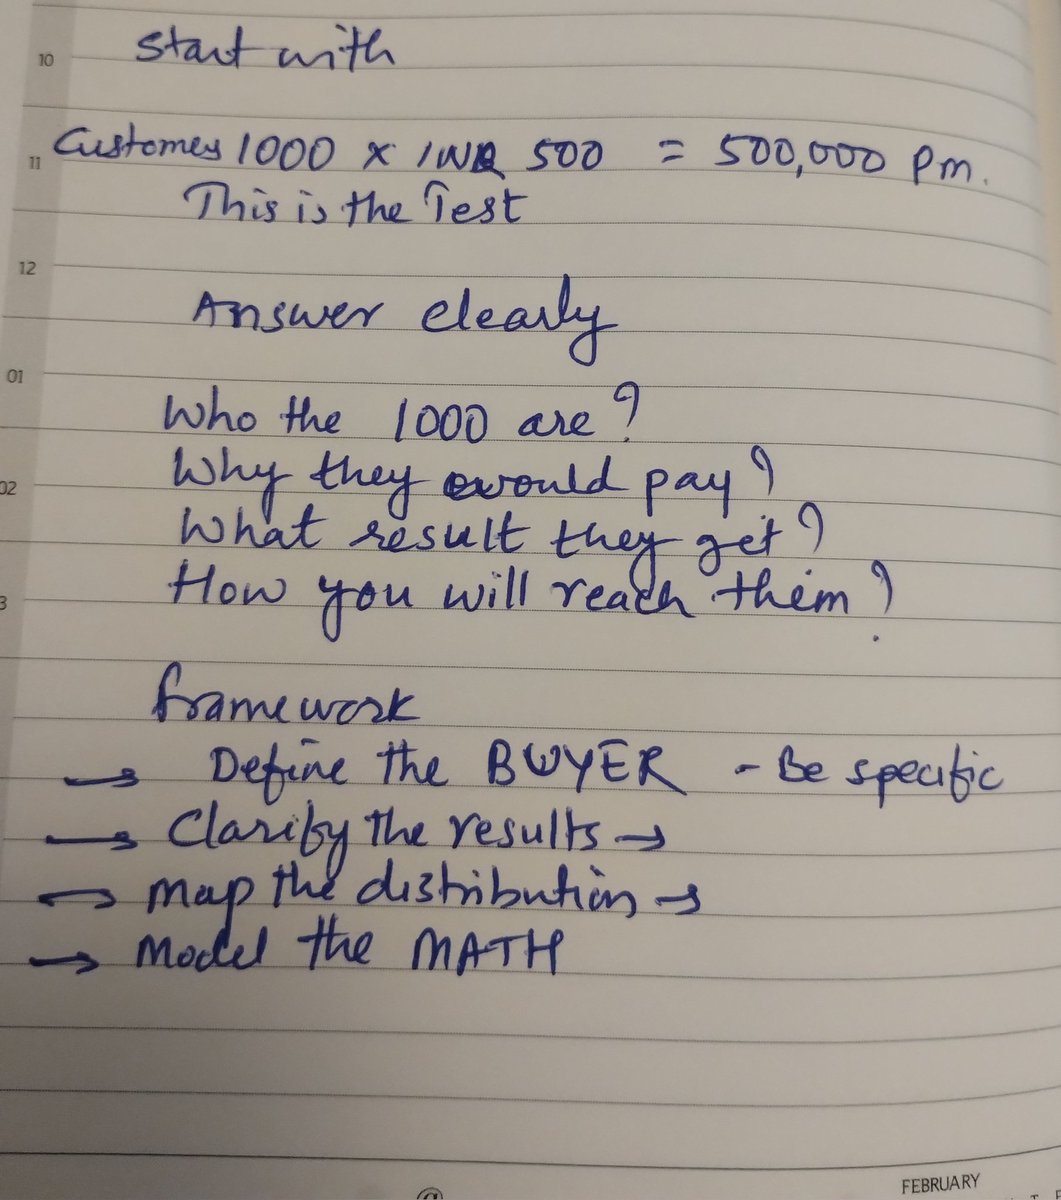 10
start with
11
Customes 1000 x INR 500 = 500,000 pm.
This is the Test
12
Answer clearly
01
Who the 1000 are?
Why they would pay?
02
What result they get?
How you will reach them?
3
framework
→ Define the BUYER - Be specific
→ Clarify the results →
→ Map the distribution →
→ Model the MATH
FEBRUARY